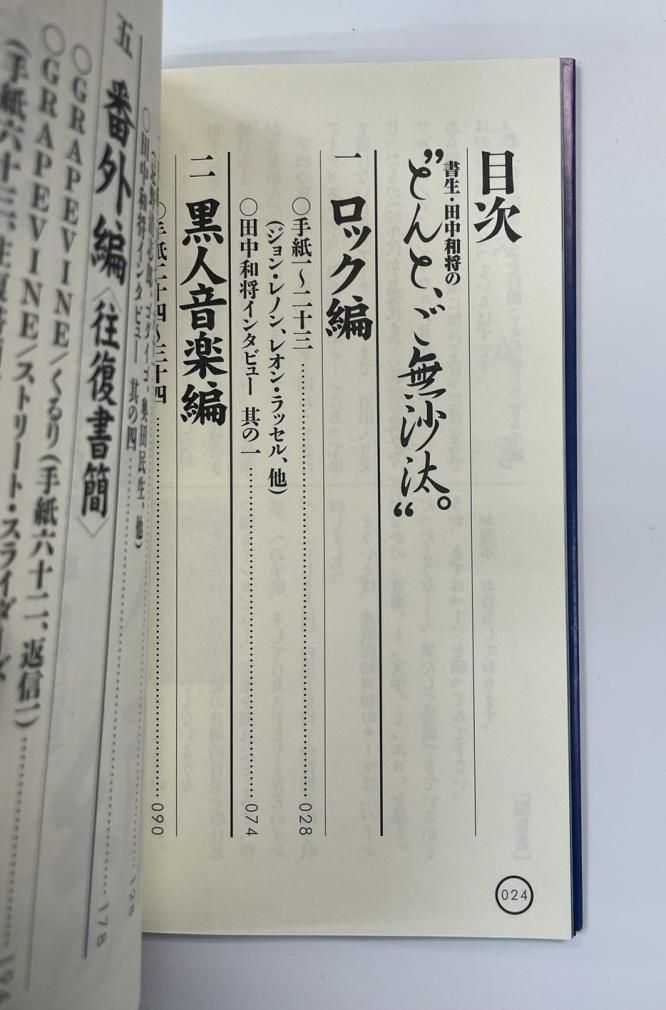 目次
書生・田中和将の
“どんと、ご無沙汰。“
一 ロック編
〇手紙一〜二十三……028
(ジョン・レノン、レオン・ラッセル、他)
〇田中和将インタビュー 其の一……074
二 黒人音楽編
〇手紙二十四〜三十四……090
024
奥田民生、他)
〇田中和将インタビュー 其の四……128
五 番外編〈往復書簡〉
〇GRAPEVINE/くるり(手紙六十二、返信一)……178
〇GRAPEVINE/ストリート・スライダーズ
(手紙六十三、往復書簡